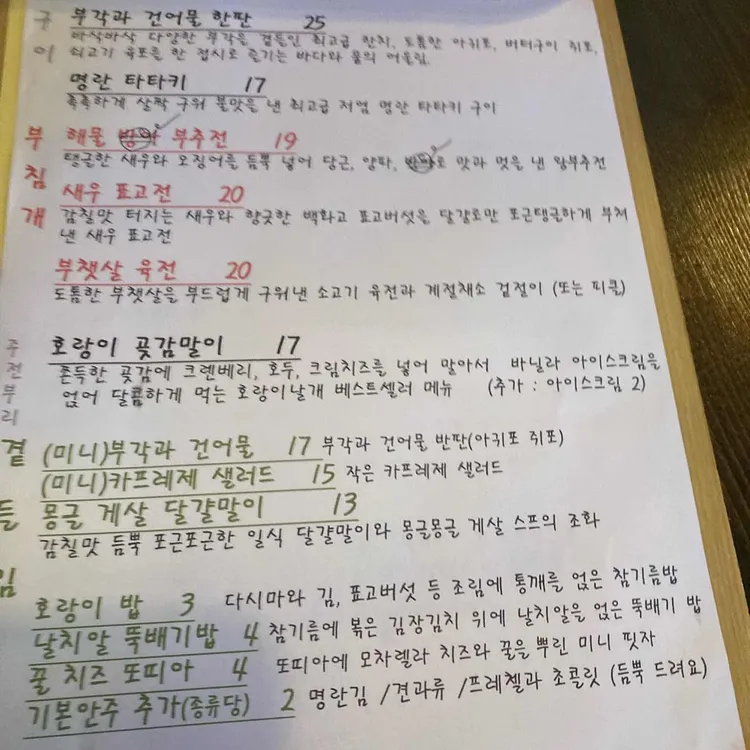 구이
부각과 건어물 한판 25
바삭바삭 다양한 부각을 곁들인 최고급 한치, 도톰한 아귀포, 버터구이 쥐포,
쇠고기 육포를 한 접시로 즐기는 바다와 뭍의 어울림.
명란 타타키 17
촉촉하게 살짝 구워 불맛을 낸 최고급 저염 명란 타타키 구이
부침개
해물 부추전 19
탱글한 새우와 오징어를 듬뿍 넣어 당근, 양파, 로 맛과 멋을 낸 왕부추전
새우 표고전 20
감칠맛 터지는 새우와 향긋한 백화고 표고버섯을 달걀로만 포근탱글하게 부쳐
낸 새우 표고전
부챗살 육전 20
도톰한 부챗살을 부드럽게 구워낸 소고기 육전과 계절채소 겉절이 (또는 피클)
주전부리
호랑이 곶감말이 17
쫀득한 곶감에 크렌베리, 호두, 크림치즈를 넣어 말아서 바닐라 아이스크림을
얹어 달콤하게 먹는 호랑이날개 베스트셀러 메뉴 (추가 : 아이스크림 2)
곁들임
(미니)부각과 건어물 17 부각과 건어물 반판(아귀포 쥐포)
(미니)카프레제 샐러드 15 작은 카프레제 샐러드
몽글 게살 달걀말이 13
감칠맛 듬뿍 포근포근한 일식 달걀말이와 몽글몽글 게살 스프의 조화
호랑이 밥 3 다시마와 김, 표고버섯 등 조림에 통깨를 얹은 참기름밥
날치알 뚝배기밥 4 참기름에 볶은 김장김치 위에 날치알을 얹은 뚝배기 밥
꿀 치즈 또띠아 4 또띠아에 모차렐라 치즈와 꿀을 뿌린 미니 핏자
기본안주 추가(종류당) 2 명란김 /견과류 /프레첼과 초콜릿 (듬뿍 드려요)